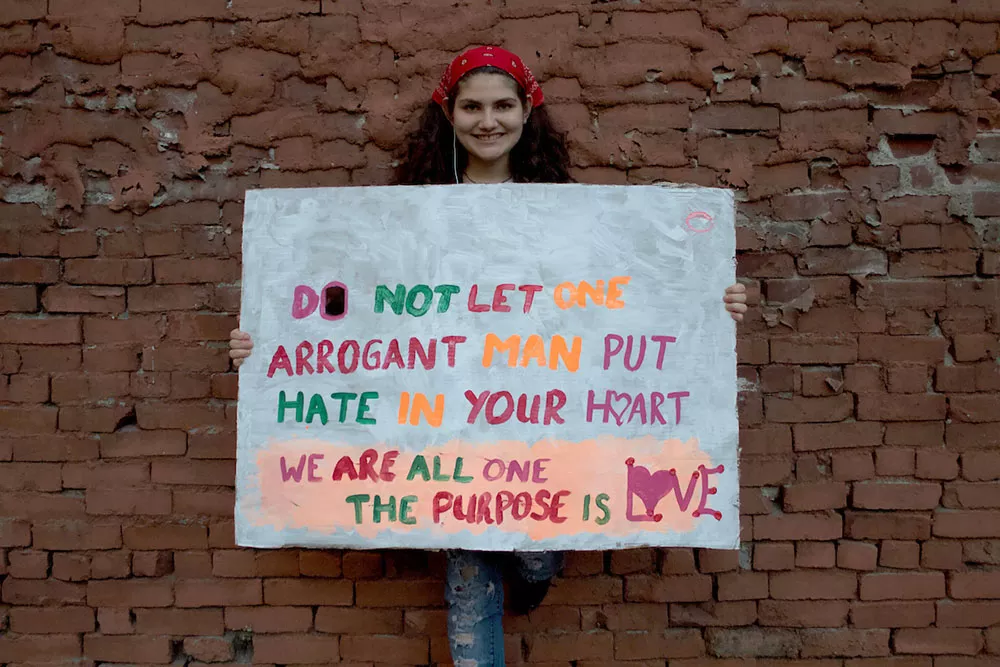 DO NOT LET ONE
ARROGANT MAN PUT
HATE IN YOUR H♡ART
WE ARE ALL ONE
THE PURPOSE IS L♥VE